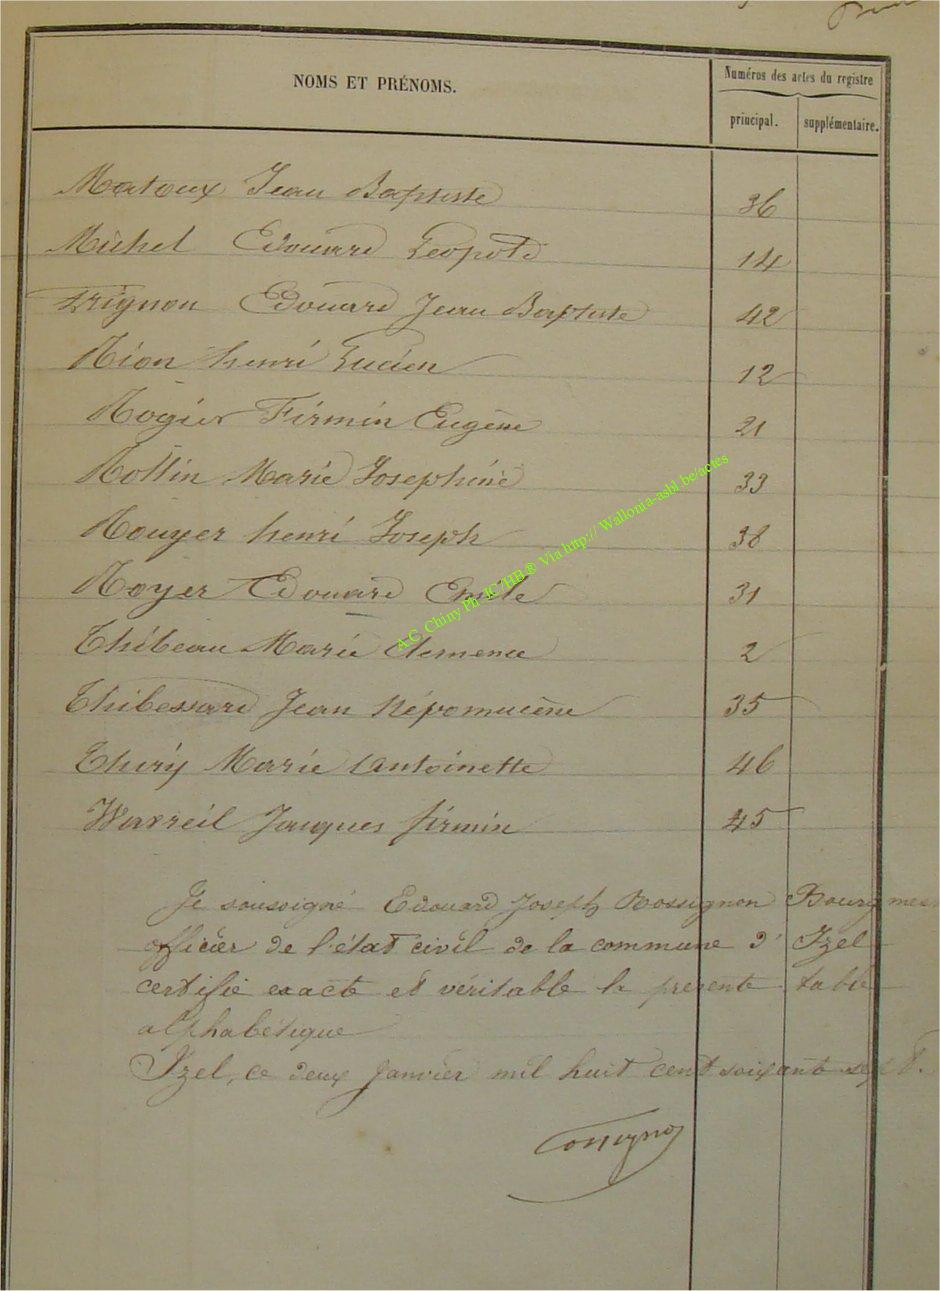 NOMS ET PRÉNOMS.
Numéros des actes du registre
principal.
supplémentaire.
Mathoux Jean Baptiste 36
Michel Edouard Léopold 14
Prignon Edouard Jean Baptiste 42
Rion henri Lucien 12
Rogier Firmin Eugène 21
Rollin Marie Joséphine 33
Rouyer henri Joseph 38
Royer Edouard Emile 31
Thibeau Marie Clemence 2
Thibessard Jean Népomucène 35
Thiry Marie Antoinette 46
Wavreil Jacques firmin 45
Je soussigné Edouard Joseph Rossignon Bourgmes
officier de l'état civil de la commune d'Izel
certifie exacte et véritable la présente table
alphabétique
Izel, ce deux Janvier mil huit cent soixante sept.
Rossignon
A.C. Chiny Ph JC/HB ® Via http:// Wallonia-asbl.be/actes